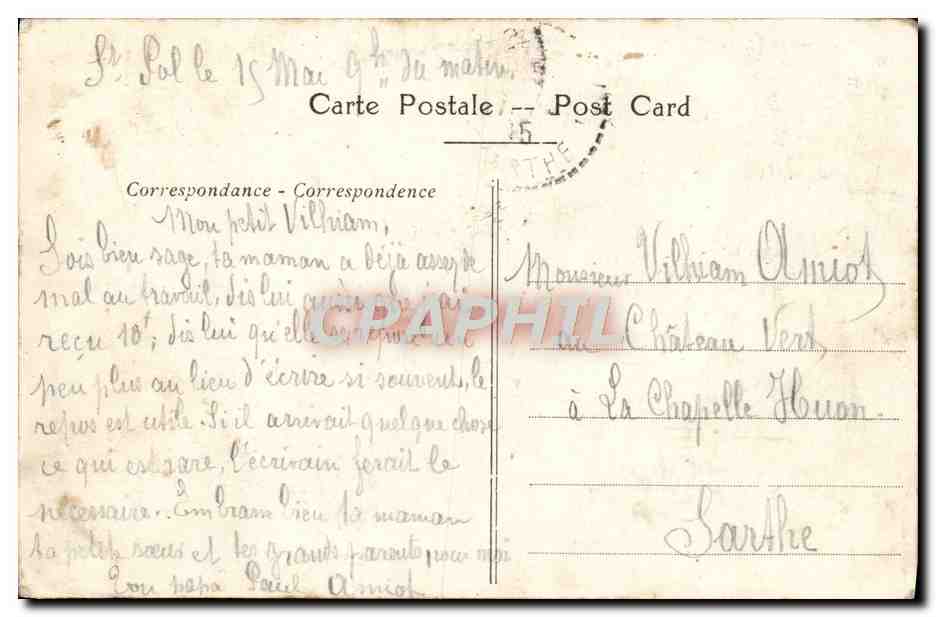 St Pol le 15 Mai 9h du matin.
Carte Postale -- Post Card
5
RTHE
Correspondance - Correspondence
Mon petit Vilhiam,
Sois bien sage, ta maman a déjà assez de
mal au travail, dis lui j'ai
reçu 10f; dis lui qu'elle se repose un
peu plus au lieu d'écrire si souvent, le
repos est utile. Si il arrivait quelque chose
ce qui est rare, l'écrivain ferait le
nécessaire. Embrasse bien ta maman
ta petite sœur et tes grands parents pour moi
Ton papa Paul Amiot
Monsieur Vilhiam Amiot
au Château Vert,
à La Chapelle Huon.
Sarthe
CPAPHIL